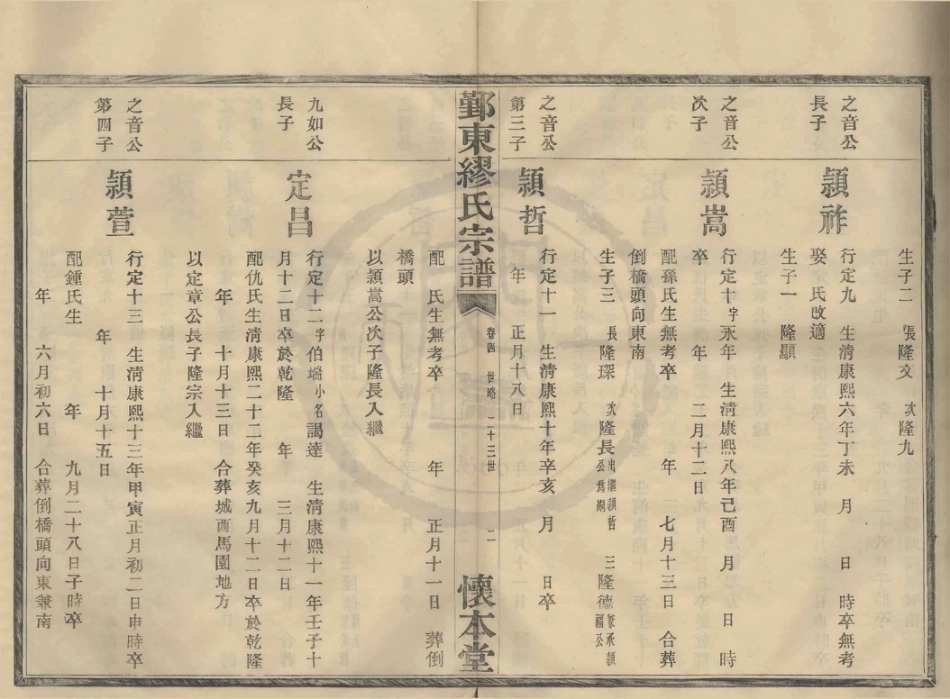 生子二 長隆交 次隆九
之音公
長子
穎祚
行定九 生清康熙六年丁未 月 日 時卒無考
娶 氏改適
生子一 隆顯
之音公
次子
穎嵩
行定十字永年 生清康熙八年己酉 月 日 時
卒 年 二月十二日
配孫氏生無考卒 年 七月十三日 合葬
倒橋頭向東南
生子三 長隆琛 次隆長出繼穎哲公爲嗣 三隆德
之音公
第三子
穎哲
行定十一 生清康熙十年辛亥 月 日卒
年 正月十八日
鄞東繆氏宗譜
卷四 世略 二十三世
懷本堂
配 氏生無考卒 年 正月十一日 葬倒
橋頭
以穎嵩公次子隆長入繼
九如公
長子
定昌
行定十二字伯端小名謁達 生清康熙十一年壬子十
月十二日卒於乾隆 年 三月十二日
配仇氏生清康熙二十二年癸亥九月十二日卒於乾隆
年 十月十三日 合葬城西馬園地方
以定章公長子隆宗入繼
之音公
第四子
穎萱
行定十三 生清康熙十三年甲寅正月初二日申時卒
年 十月十五日
配鍾氏生 年 九月二十八日子時卒
年 六月初六日 合葬倒橋頭向東兼南